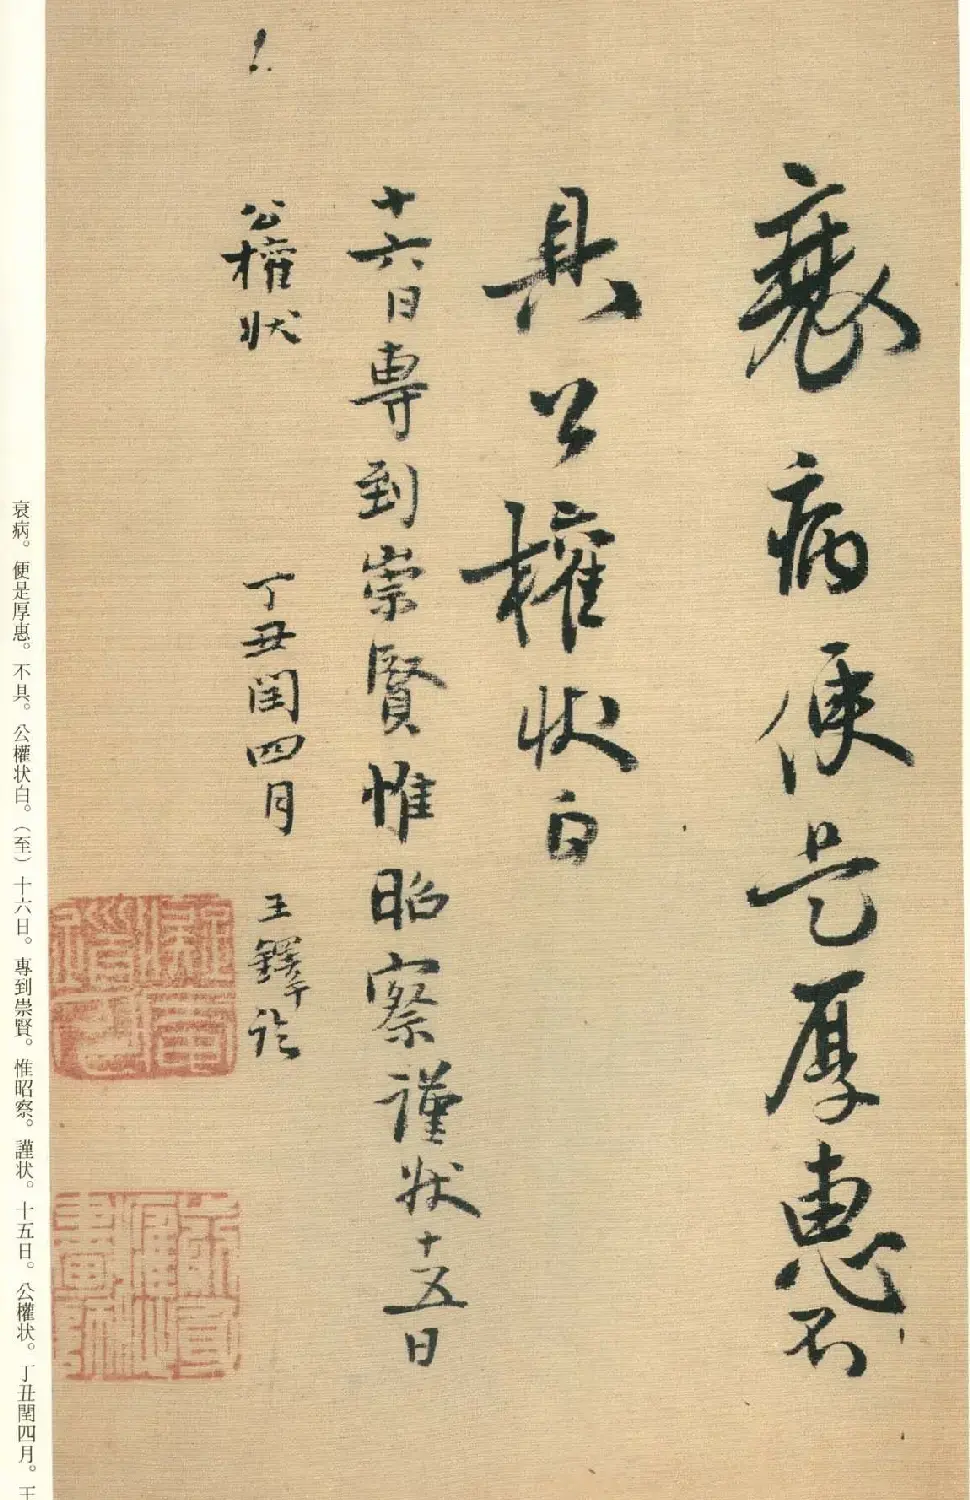 衰病便是厚惠不
具公權状白
十六日専到崇賢惟昭察謹状十五日
公權状　丁丑閏四月　王鐸
衰病。便是厚惠。不具。公權状白。（至）十六日。專到崇賢。惟昭察。謹状。十五日。公權状。丁丑閏四月。王